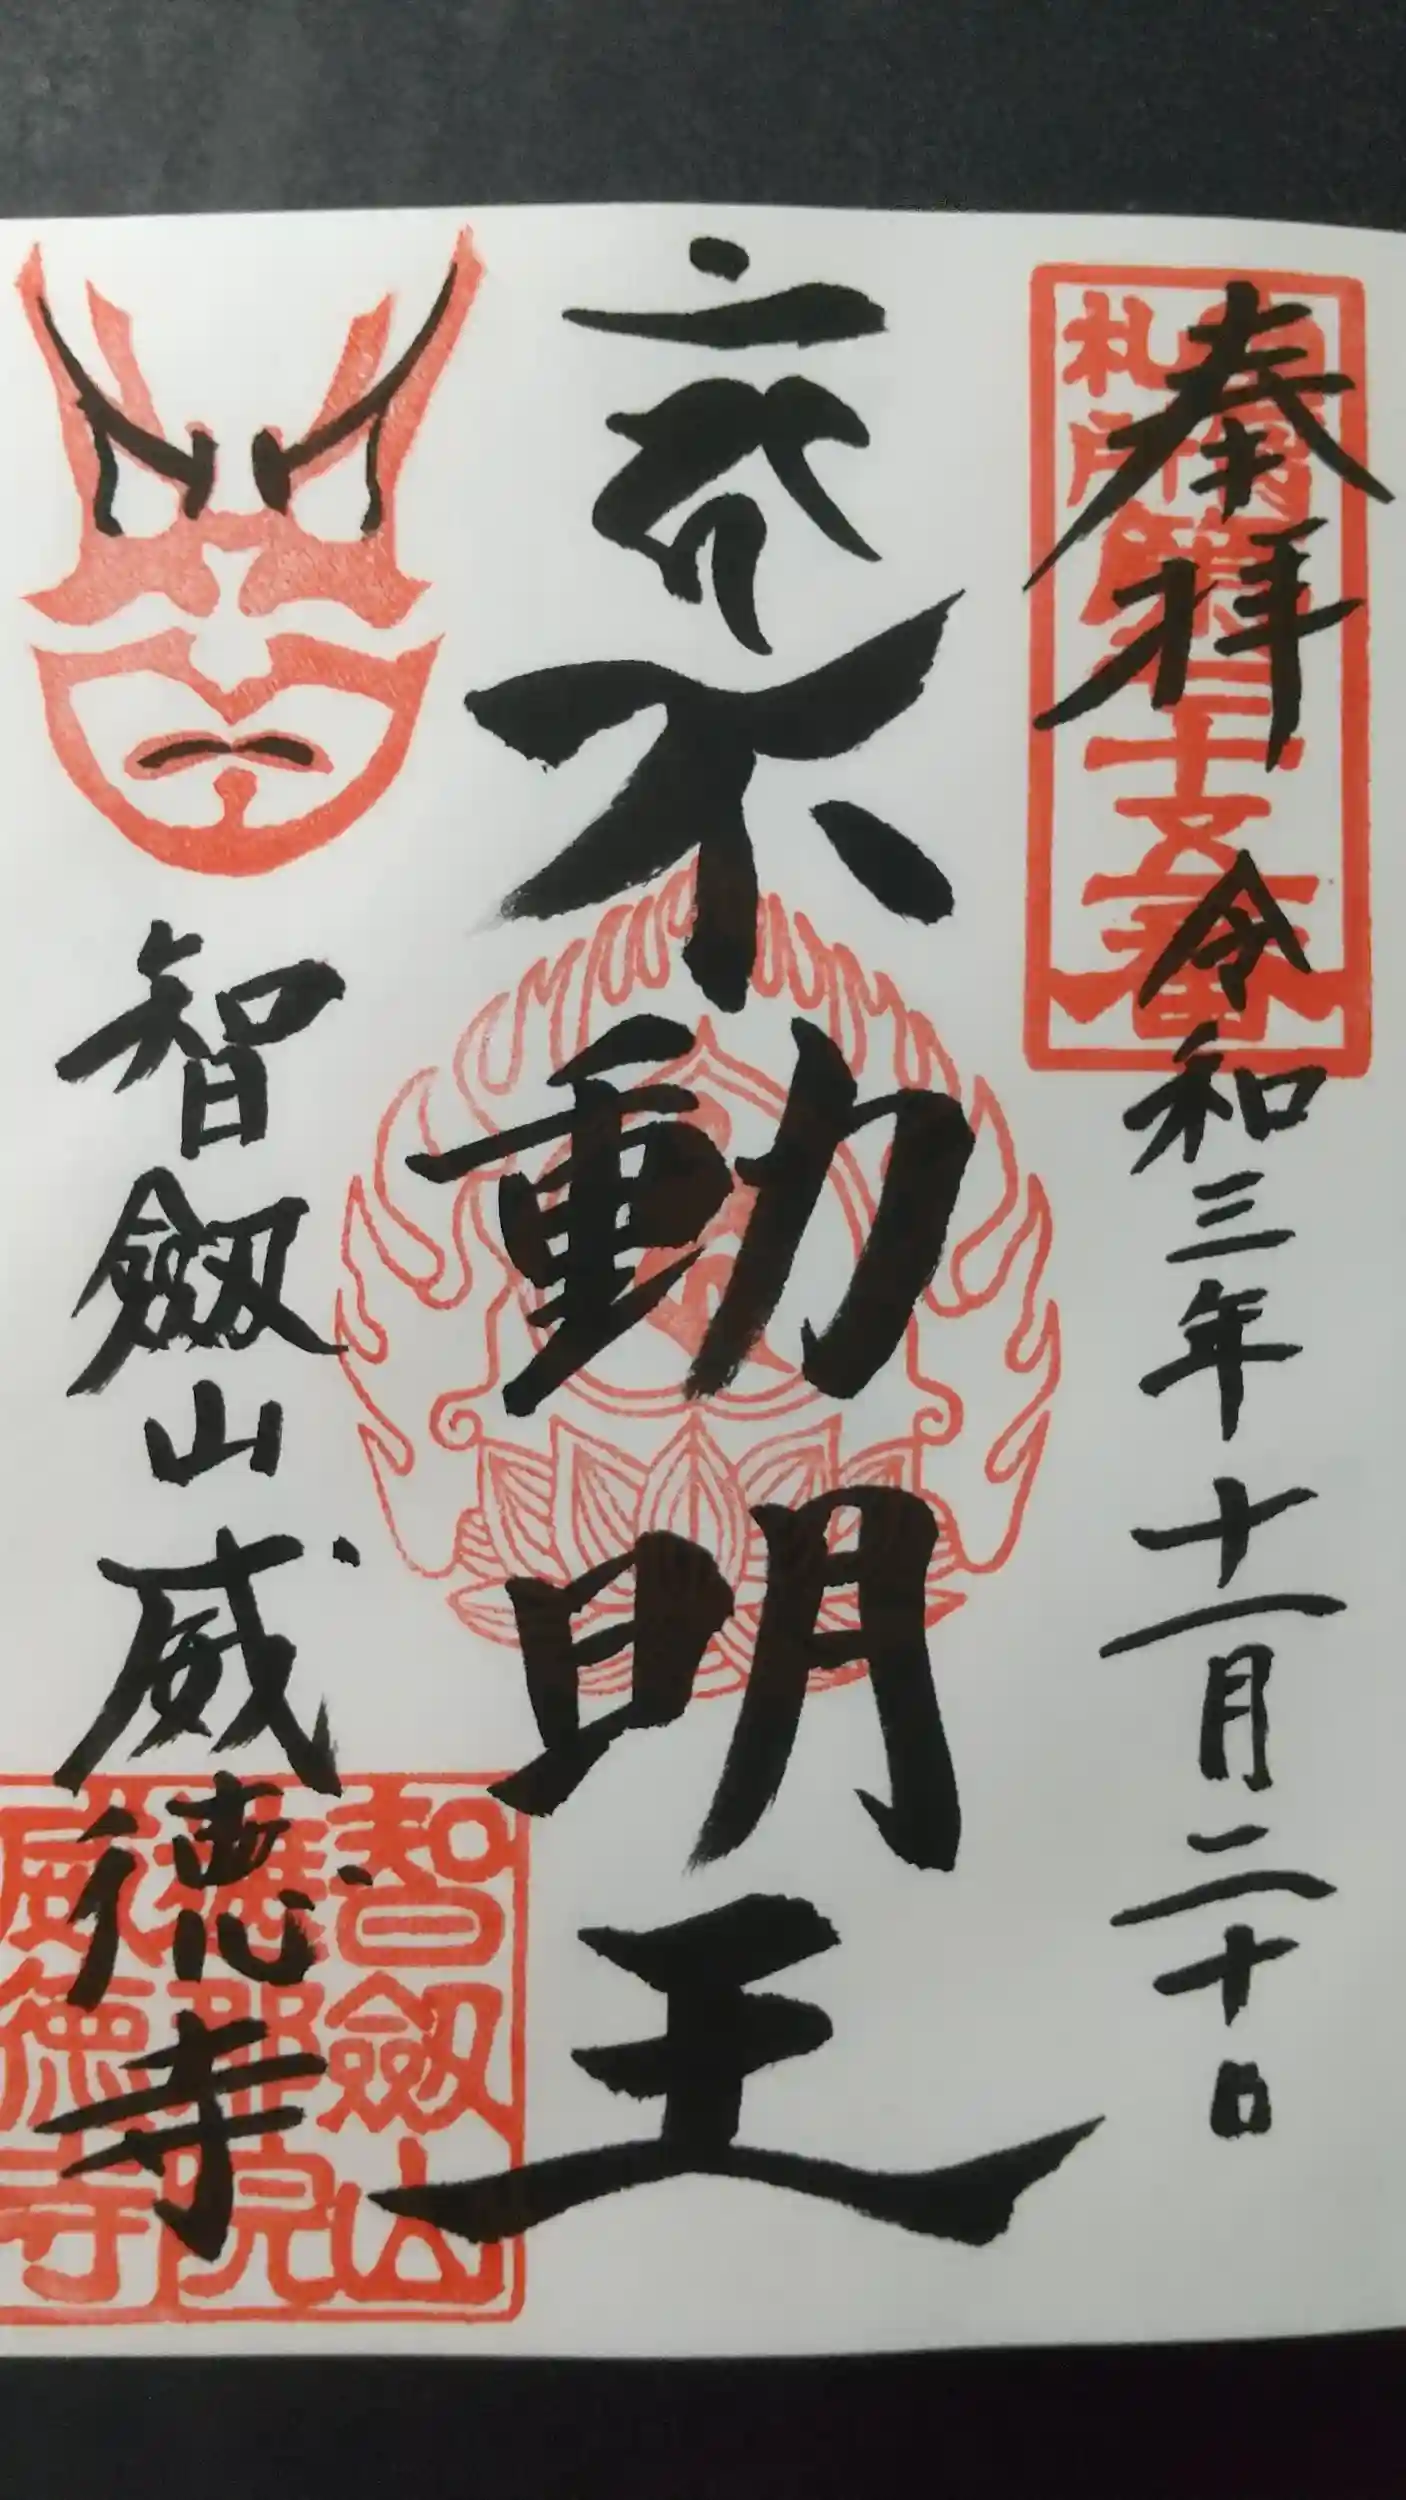 奉拝
令和三年十一月二十日
不動明王
智劔山威徳寺
札所
十五番
智劔山
威徳寺